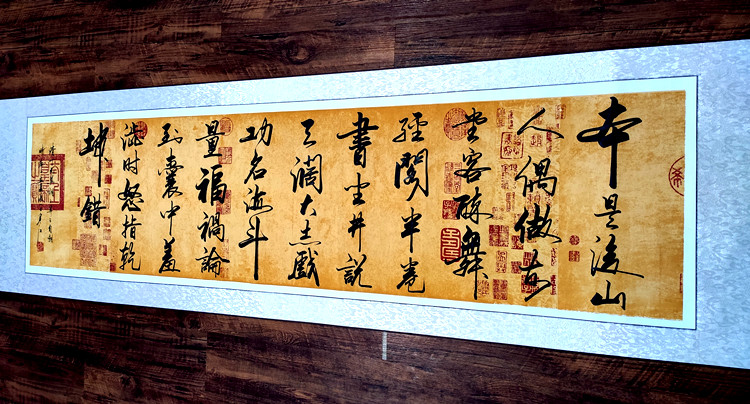 本是後山
人偶做前
堂客醉舞
經閣半卷
書坐井說
天闊大志戲
功名海斗
量福禍論
到囊中羞
澀時怒指乾
坤錯